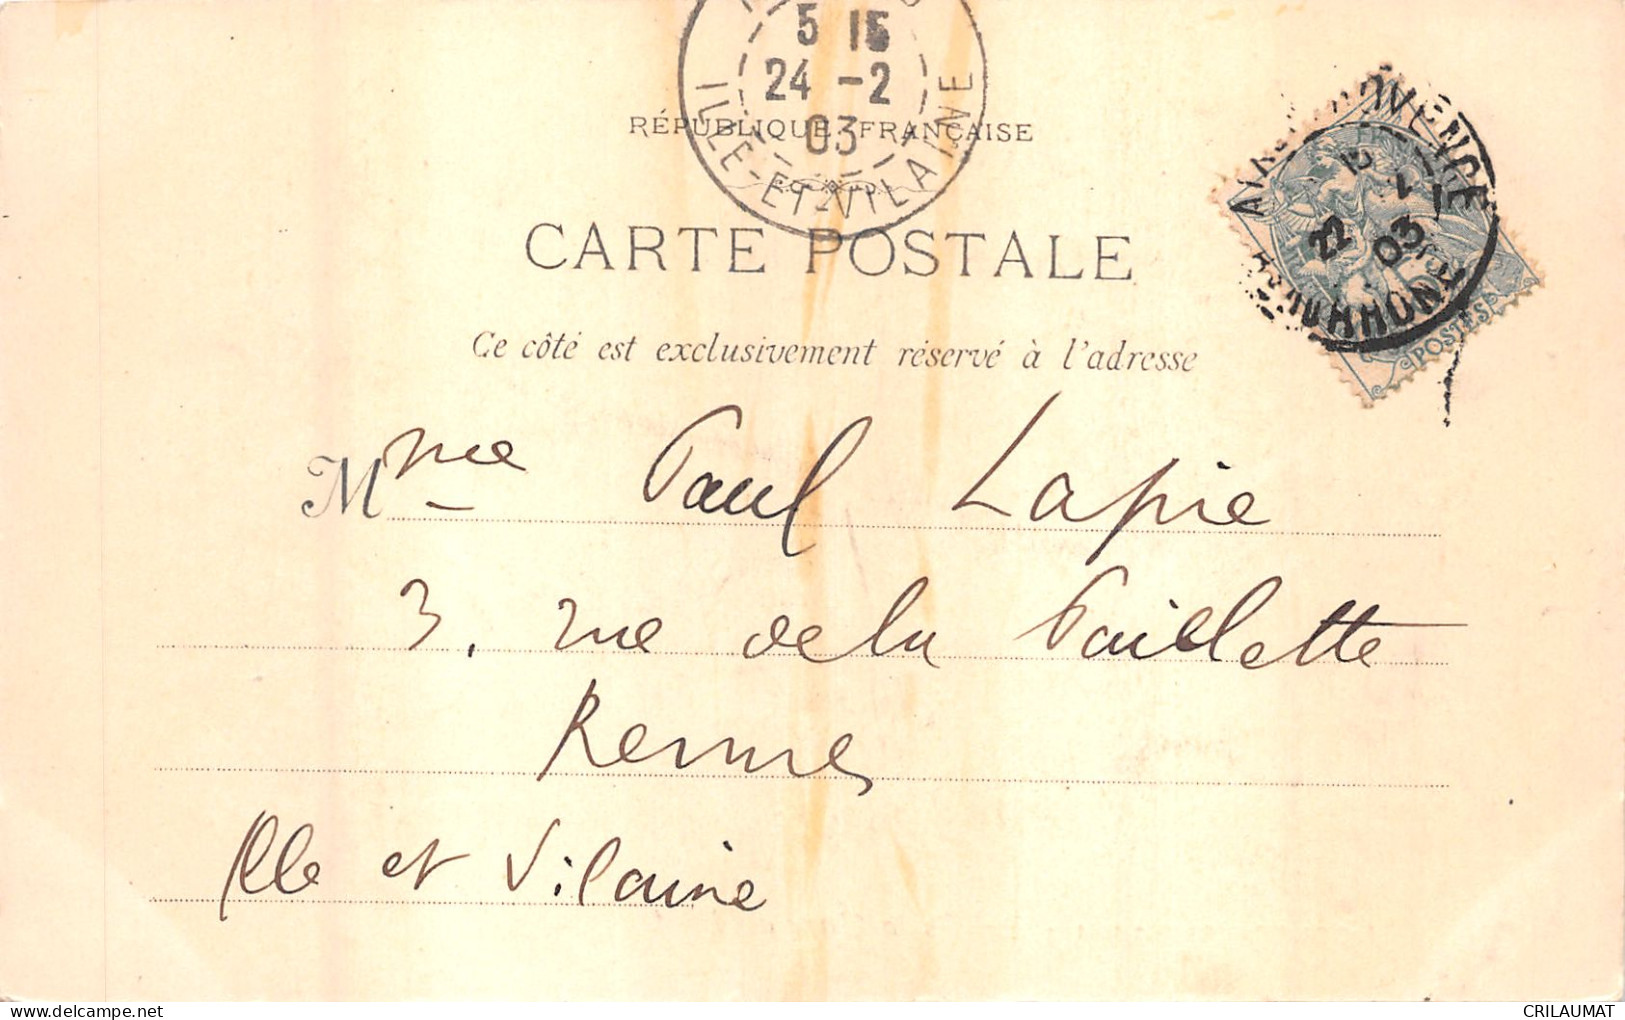 5 15
24 -2
03
ILLE-ET-VILAINE
RÉPUBLIQUE FRANÇAISE
CARTE POSTALE
Ce côté est exclusivement réservé à l'adresse
22
03
POSTES
Mme Paul Lapie
3, rue de la Paillette
Rennes
Ille et Vilaine
CRILAUMAT